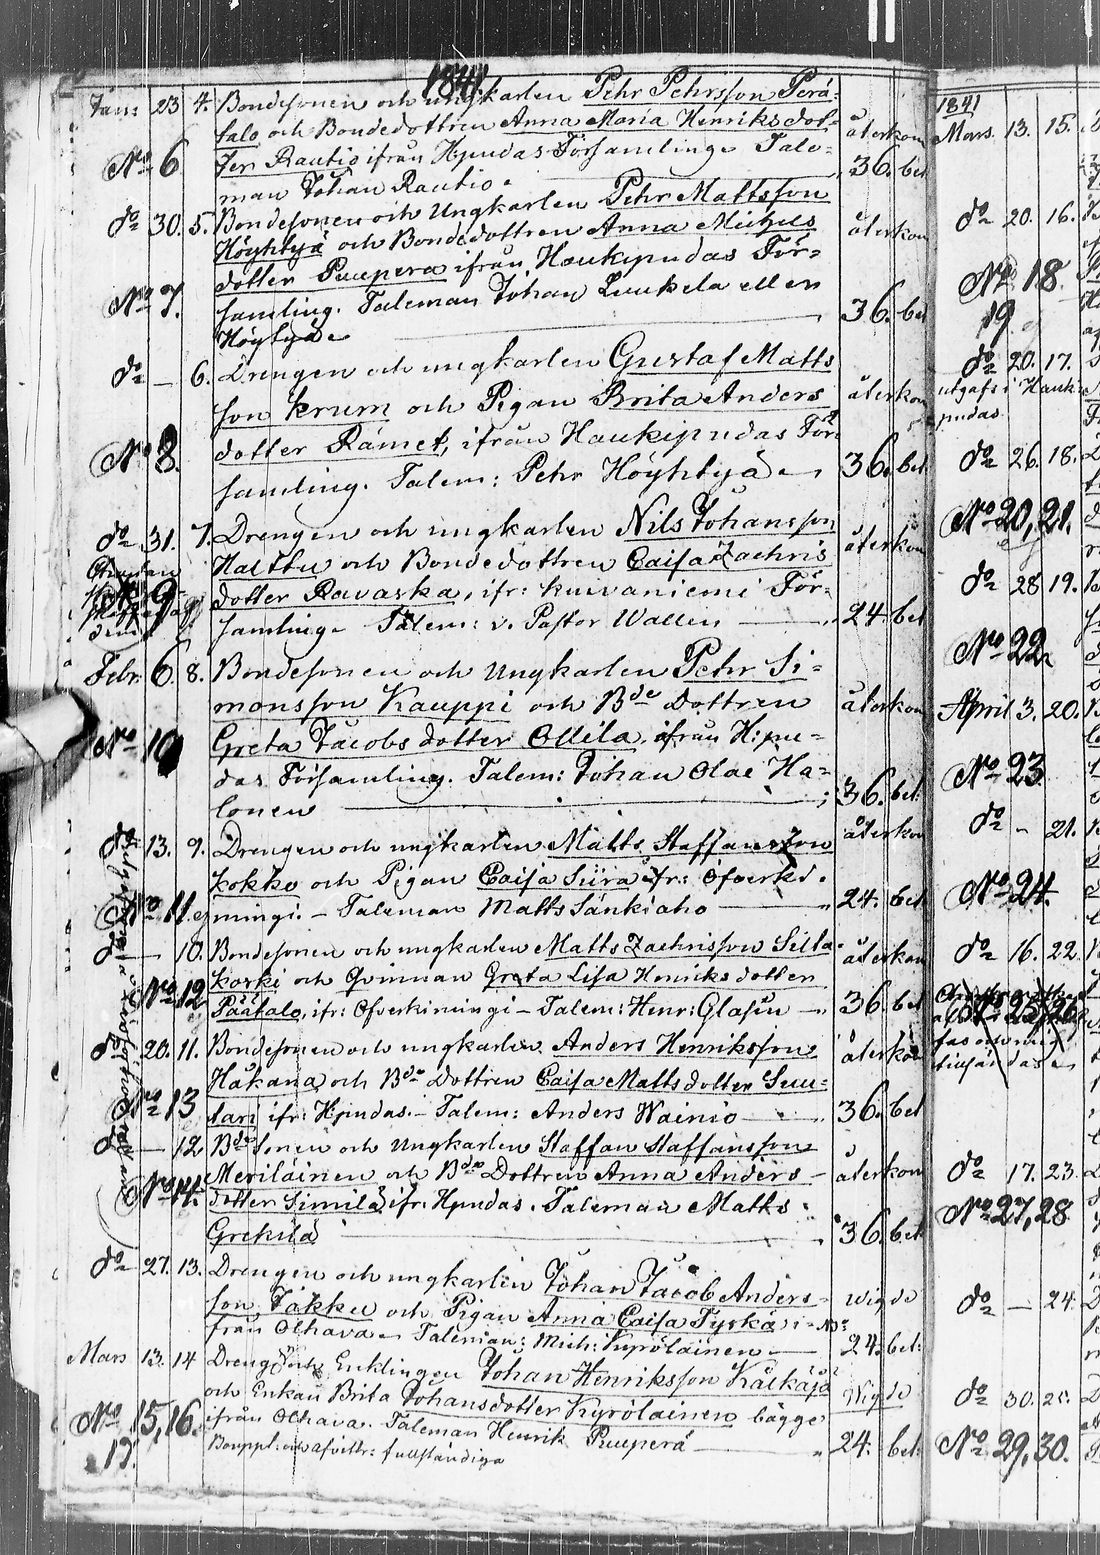 1841.
Jan: 23 4. Bondesonen och ungkarlen Pehr Pehrsson Perä-
salo och Bondedottren Anna Maria Henriksdot- återkom
No 6 ter Rautio ifrån Hpudas Församling. Tale- 36. bet
man Johan Rautio.
do 30. 5. Bondesonen och Ungkarlen Pehr Mattsson återkom
Höyhtyä och Bondedottren Anna Michels
dotter Puuperä ifrån Haukipudas För-
No 7. samling. Taleman Johan Luukela eller 36. bet
Höyhtyä
do — 6. Drengen och ungkarlen Gustaf Matts
son Krum och Pigan Brita Anders återkom
No 8. dotter Rämet, ifrån Haukipudas För
samling. Talem: Pehr Höyhtyä 36. bet
do 31. 7. Drengen och ungkarlen Nils Johansson återkom
Halttu och Bondedottren Caisa Zachris
9 dotter Ravaska, ifr: Kuivaniemi För-
samling. Talem: v. Pastor Wallin — 24. bet
Febr. 6. 8. Bondesonen och Ungkarlen Pehr Si-
monsson Kauppi och Bde Dottren återkom
No 10 Greta Jacobsdotter Ollila, ifrån H:pu-
das Församling. Talem: Johan Olai Ha-
lonen — 36. bet.
do 13. 9. Drengen och ungkarlen Matts Staffansson återkom
Kokko och Pigan Caisa Siira ifr: Öfverki-
No 11. mingi. — Taleman Matts Sankiaho — 24. bet
do — 10. Bondesonen och ungkarlen Matts Zachrisson Silta- återkom
No 12 korki och Qvinnan Greta Lisa Henriksdotter
Päätalo, ifr: Öfverkiimingi — Talem: Henr: Glasun — 36. bet
do 20. 11. Bondesonen och ungkarlen Anders Henriksson återkom
Håkana och Bde Dottren Caisa Mattsdotter Suu-
No 13 tari ifr: Hpudas. — Talem: Anders Wainio — 36. bet
do — 12 Bde Sonen och Ungkarlen Staffan Staffansson
No 14. Meriläinen och Bde Dottren Anna Anders- återkom
dotter Similä, ifr: Hpudas. Taleman Matts
Grekilä — 36. bet
do 27. 13. Drengen och ungkarlen Johan Jacob Anders-
son Jakku och Pigan Anna Caisa Tyskä wigde
från Olhava. Taleman: Mich: Kyröläinen — 24. bet:
Mars 13. 14 Dreng och Enklingen Johan Henriksson
och Enkan Brita Johansdotter Kyröläinen bägge wigde
No 15, 16. ifrån Olhava. Taleman Henrik Puuperä — 24. bet:
17. fullständiga
1841
Mars. 13. 15.
do 20. 16.
No 18
19
do 20. 17.
utgafs i Hauki
pudas
do 26. 18.
No 20, 21.
do 28 19.
No 22
April 3. 20.
No 23
do — 21.
No 24.
do 16. 22.
No 25, 26
do 17. 23.
No 27, 28
do — 24.
do 30. 25.
No 29, 30.